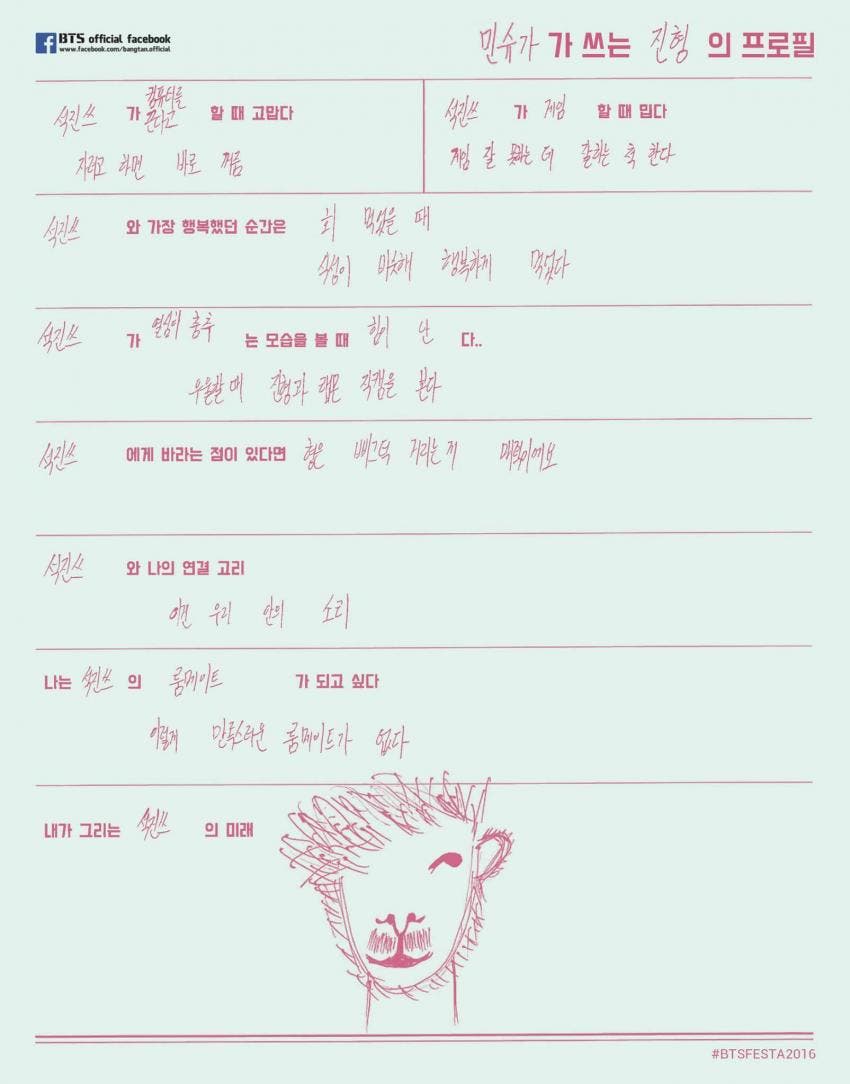 BTS official facebook
www.facebook.com/bangtan.official
민슈가 가 쓰는 진형 의 프로필
석진쓰 가 컴퓨터를 끈다고 할 때 고맙다
자려고 하면 바로 꺼줌
석진쓰 가 게임 할 때 밉다
게임 잘 못하는 데 잘하는 척 한다
석진쓰 와 가장 행복했던 순간은 회 먹었을 때
식성이 비슷해 행복하게 먹었다
석진쓰 가 열심히 춤추 는 모습을 볼 때 힘이 난 다..
우울할 때 진형과 랩몬 직캠을 본다
석진쓰 에게 바라는 점이 있다면 형은 삐그덕 거리는게 매력이에요
석진쓰 와 나의 연결 고리
이건 우리 안의 소리
나는 석진쓰 의 룸메이트 가 되고 싶다
이렇게 만족스러운 룸메이트가 없다
내가 그리는 석진쓰 의 미래
#BTSFESTA2016